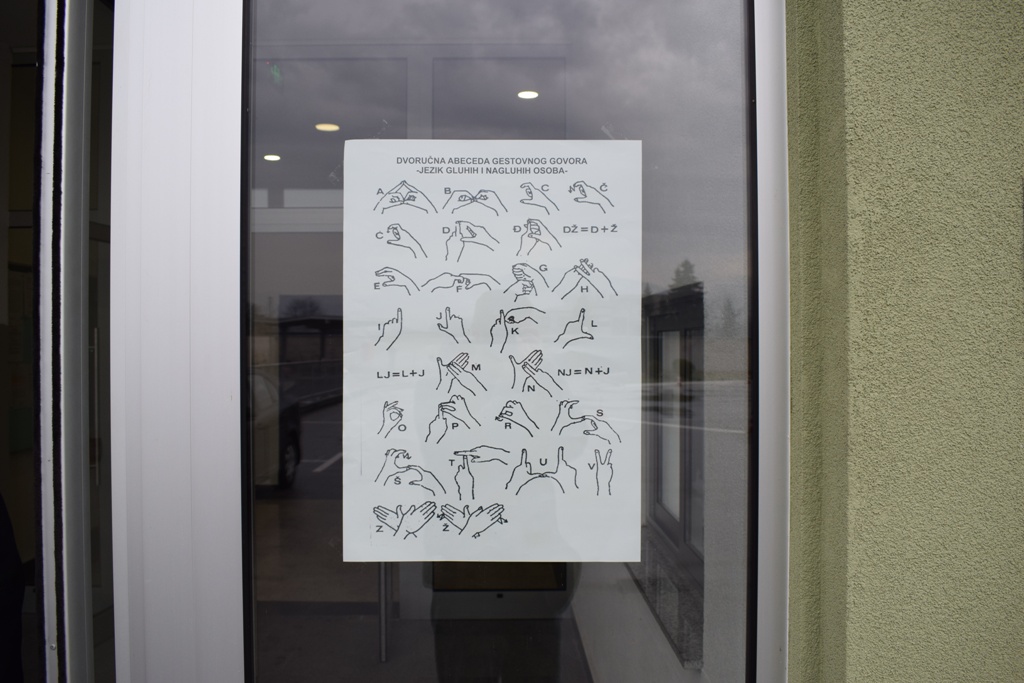 DVORUČNA ABECEDA GESTOVNOG GOVORA
-JEZIK GLUHIH I NAGLUHIH OSOBA-
A B C Č
Ć D Đ DŽ=D+Ž
E F G H
I J K L
LJ=L+J M N NJ=N+J
O P R S
Š T U V
Z Ž